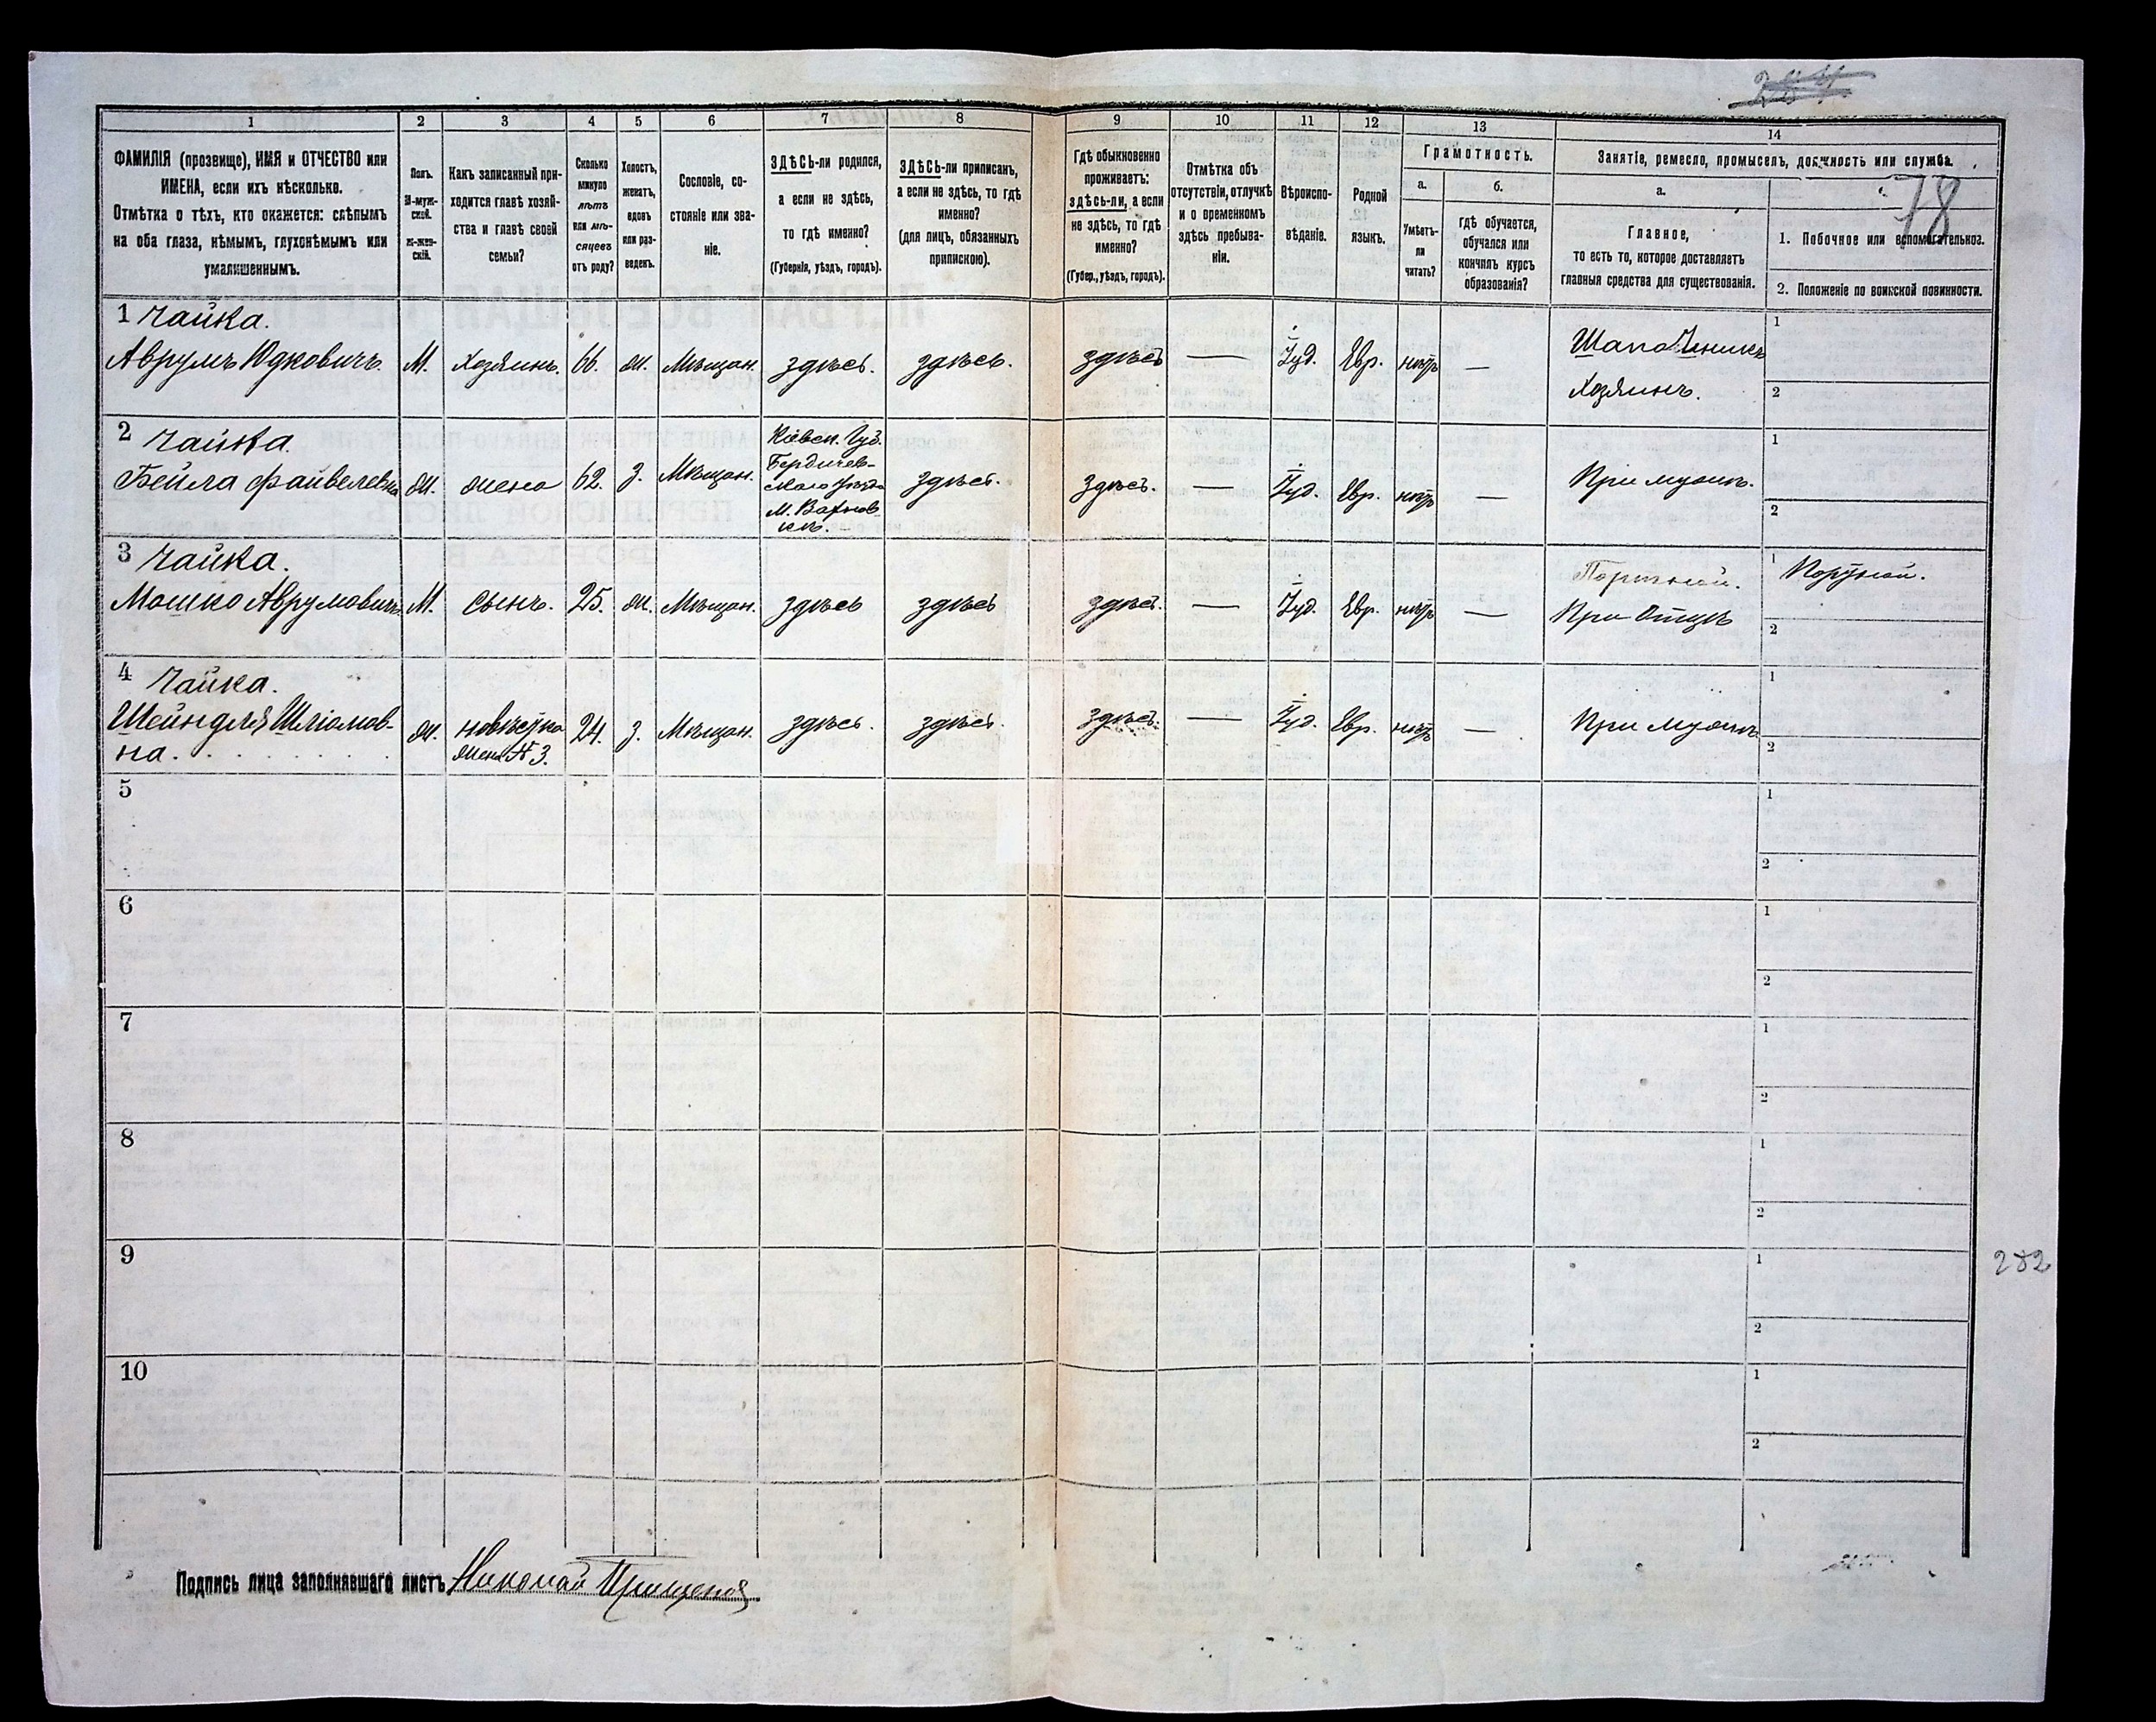 1 2 3 4 5 6 7 8 9 10 11 12 13 14
ФАМИЛІЯ (прозвище), ИМЯ и ОТЧЕСТВО или
ИМЕНА, если ихъ нѣсколько.
Отмѣтка о тѣхъ, кто окажется: слѣпымъ
на оба глаза, нѣмымъ, глухонѣмымъ или
умалишеннымъ.
Полъ.
М-муж-
ской.
Ж-жен-
скій.
Какъ записанный при-
ходится главѣ хозяй-
ства и главѣ своей
семьи?
Сколько
минуло
лѣтъ
или мѣ-
сяцевъ
отъ роду?
Холостъ,
женатъ,
вдовъ
или раз-
веденъ.
Сословіе, со-
стояніе или зва-
ніе.
ЗДѢСЬ-ли родился,
а если не здѣсь,
то гдѣ именно?
(Губернія, уѣздъ, городъ).
ЗДѢСЬ-ли приписан,
а если не здѣсь, то гдѣ
именно?
(для лицъ, обязанныхъ
припискою).
Гдѣ обыкновенно
проживаетъ:
здѣсь-ли, а если
не здѣсь, то гдѣ
именно?
(Губер., уѣздъ, городъ).
Отмѣтка объ
отсутствіи, отлучкѣ
и о временномъ
здѣсь пребыва-
ніи.
Вѣроиспо-
вѣданіе.
Родной
языкъ.
Грамотность.
а.
Умѣетъ-
ли
читать?
б.
Гдѣ обучается,
обучался или
кончилъ курсъ
образованія?
Занятіе, ремесло, промыселъ, должность или служба.
78
а.
Главное,
то есть то, которое доставляетъ
главныя средства для существованія.
1. Побочное или вспомогательное.
2. Положеніе по воинской повинности.
1 Чайка.
Аврумъ Юдковичъ. М. Хозяинъ. 66. ж. Мѣщан. здѣсь. здѣсь. здѣсь — Іуд. Евр. нѣтъ — Шапочникъ
Хозяинъ.
1
2
2 Чайка.
Бейла Файвелевна ж. жена 62. З. Мѣщан. Кіевск. Губ.
Бердичев-
скаго Уѣзда
М.
здѣсь. здѣсь. — Іуд. Евр. нѣтъ — При мужѣ.
1
2
3 Чайка.
Мошко Аврумовичъ М. Сынъ. 25. ж. Мѣщан. здѣсь здѣсь здѣсь. — Іуд. Евр. нѣтъ — Портной.
При Отцѣ
1 Портной.
2
4 Чайка.
Шейндля Шліомов-
на.
ж. невѣстка
жена №3.
24. З. Мѣщан. здѣсь. здѣсь. здѣсь. — Іуд. Евр. нѣтъ — При мужѣ.
1
2
5
1
2
6
1
2
7
1
2
8
1
2
9
1
2
282
10
1
2
Подпись лица заполнявшаго листъ Николай